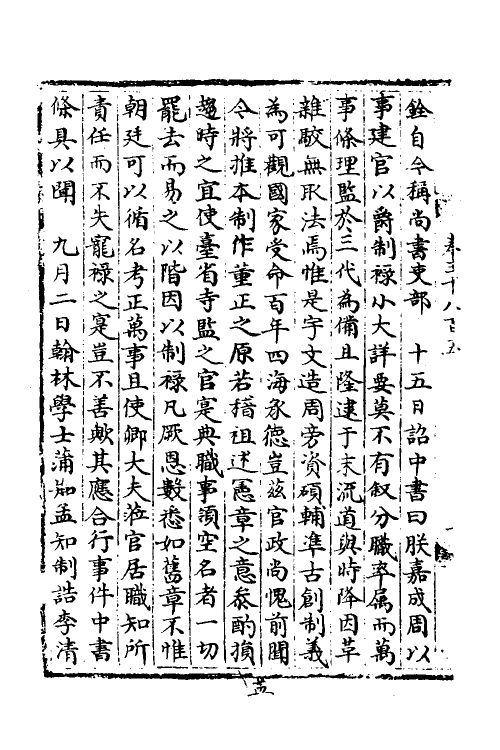 銓自今稱尚書吏部　十五日詔中書曰朕嘉成周以
事建官以爵制祿小大詳要莫不有叙分職率属而萬
事條理監於三代為備且隆逮于末流道與時降因革
雜駁無取法焉惟是宇文造周旁資碩輔準古創制義
為可觀國家受命百年四海承德豈兹官政尚愧前聞
今將推本制作董正之原若稽祖述憲章之意叅酌損
趨時之宜使臺省寺監之官寔典職事領空名者一切
罷去而易之以階因以制祿凡厥恩數悉如舊章不惟
朝廷可以循名考正萬事且使卿大夫蒞官居職知所
責任而不失寵祿之寔豈不善歟其應合行事件中書
條具以聞　九月二日翰林學士蒲知孟知制誥李清
卷五千八百五